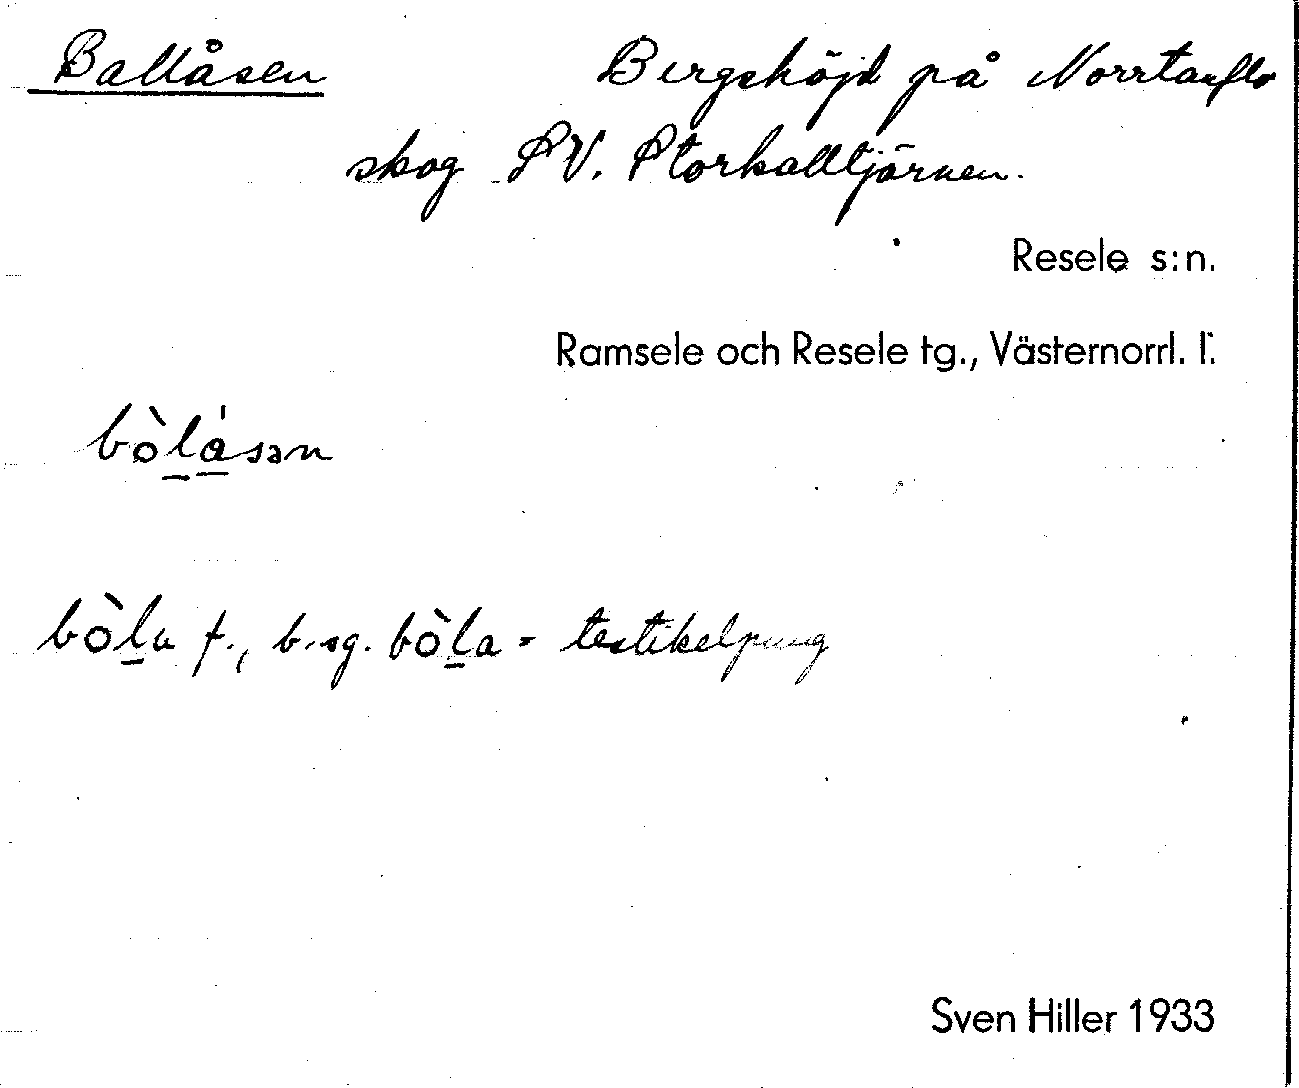 Ballåsen Bergshöjd på Norrtanflo
skog SV. Storkalltjärnen.
Resele s:n.
Ramsele och Resele tg., Västernorrl. l.
bòlåsən
bòlu f., b.sg. bòla = testikelpung
Sven Hiller 1933